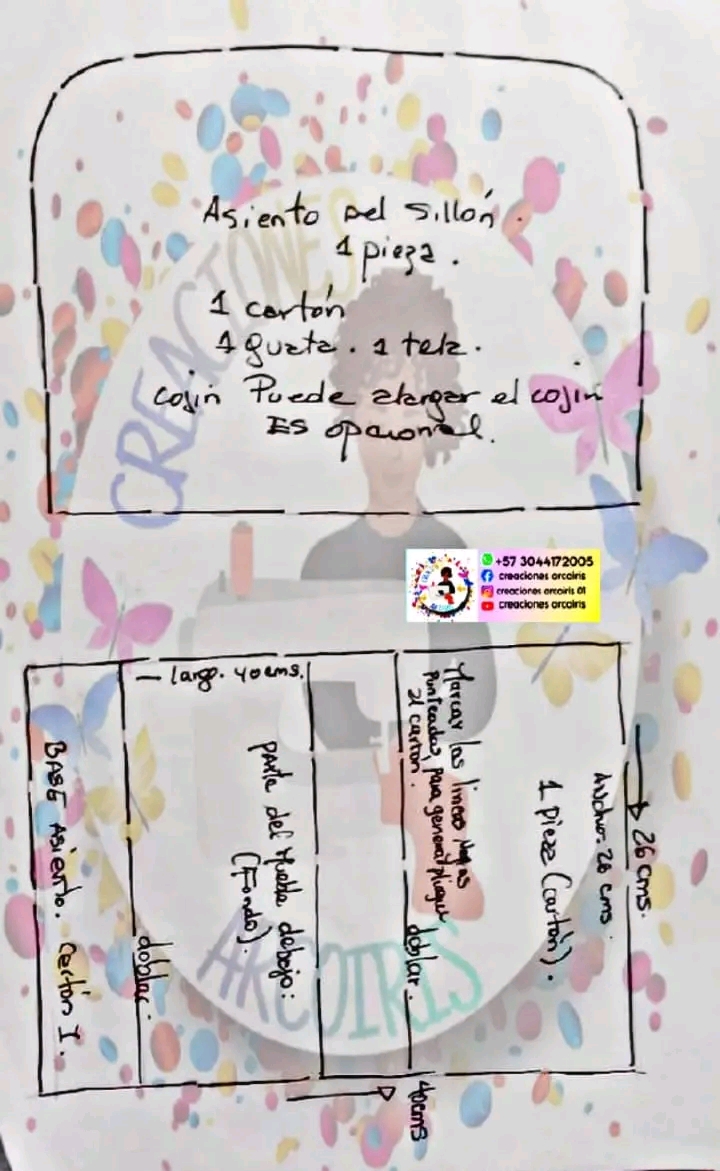 Asiento del sillón.
1 pieza.
1 cartón
1 guata. 1 tela.
cojin Puede alargar el cojin
ES opcional.
CREACIONES
ARCOIRIS
+57 3044172005
creaciones arcoiris
creaciones arcoiris 01
creaciones arcoiris
largo. 40cms.
Marcar las lineas
Punteadas, Para generar pliegue
al carton.
doblar.
Ancho. 26 cms.
1 pieza (cartón).
26 cms.
parte del Mueble debajo:
(Fondo).
doblar.
BASE Asiento. Cartón 1.
40cms